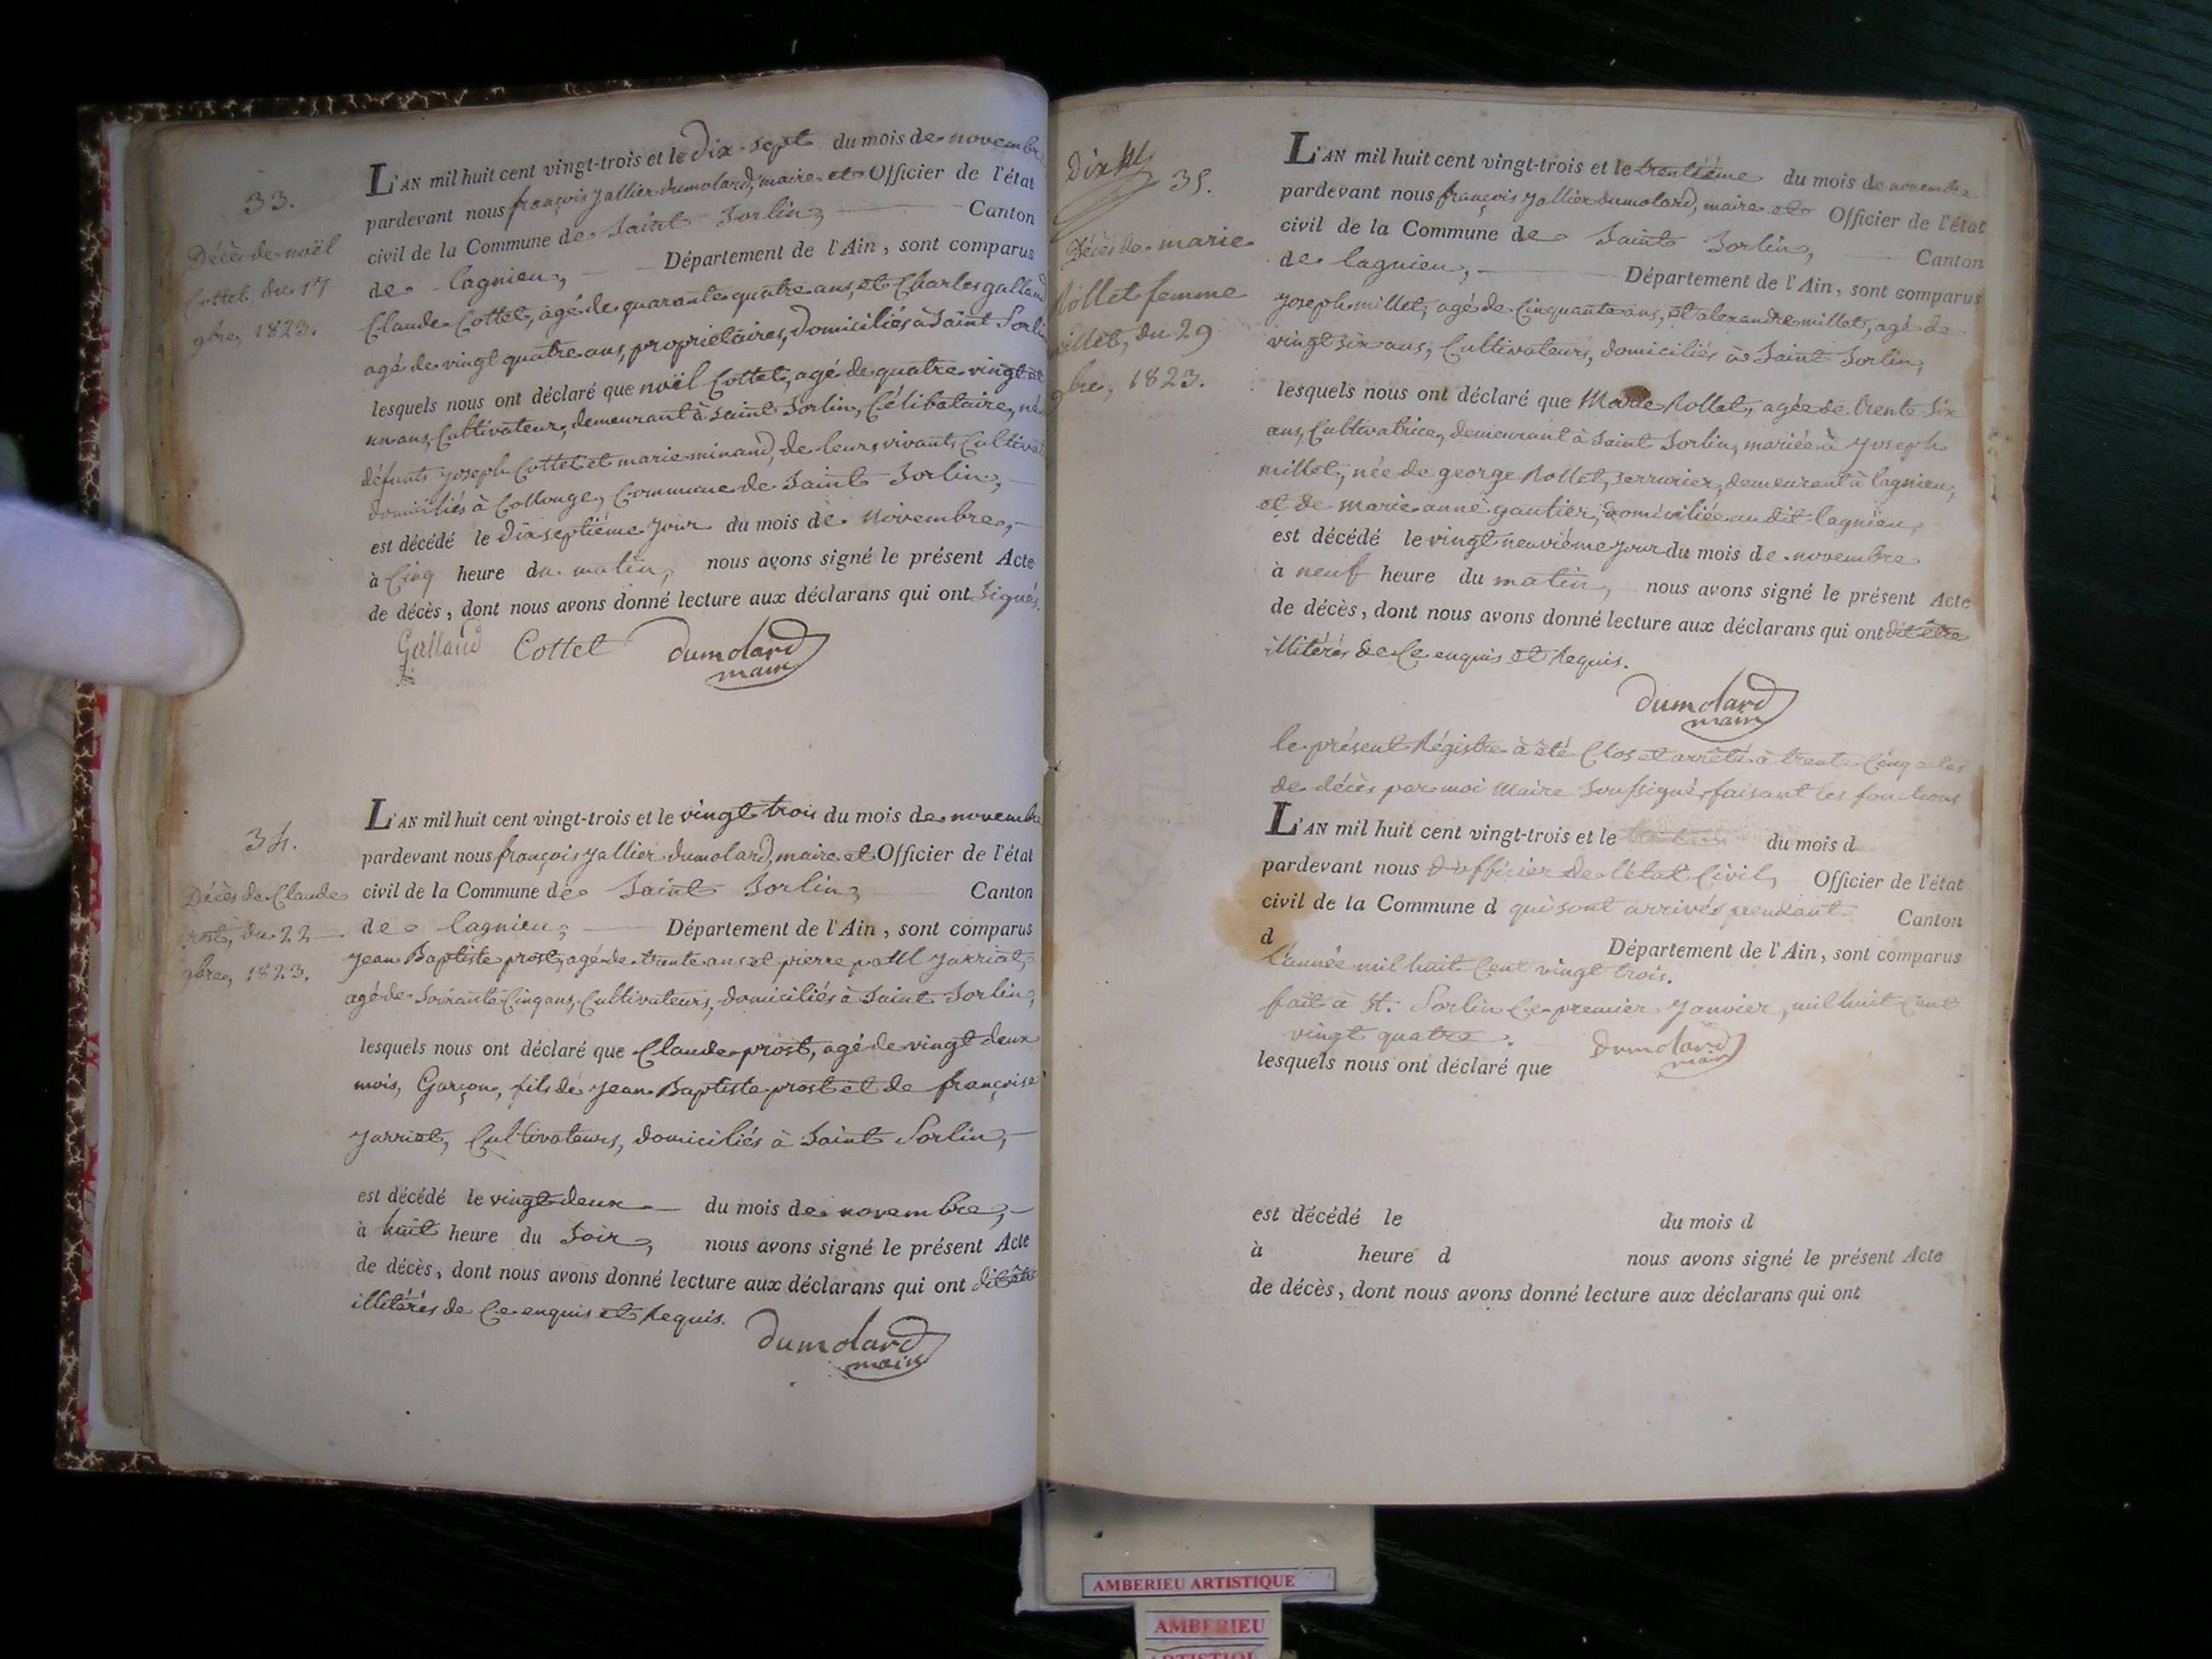 33.
Décès de noël
Cottet, du 17
9bre, 1823.
L'AN mil huit cent vingt-trois et le Dix-sept du mois de novembre
pardevant nous françois Jallier dumolard, maire et Officier de l'état
civil de la Commune de Saint Sorlin, Canton
de lagnieu, Département de l'Ain, sont comparus
Claude Cottet, agé de quarante quatre ans, et Charles galland
agé de vingt quatre ans, propriétaires, domiciliés à Saint Sorlin
lesquels nous ont déclaré que noël Cottet, agé de quatre vingt et
un ans, Cultivateur, demeurant à Saint Sorlin, Célibataire, né
défunts joseph Cottet et marie minand, de leurs vivants Cultivat
domiciliés à Collonge, Commune de Saint Sorlin,
est décédé le dix septiéme jour du mois de Novembre,
à Cinq heure du matin, nous avons signé le présent Acte
de décès, dont nous avons donné lecture aux déclarans qui ont Signés.
Galland Cottet dumolard
maire
34.
Décès de Claude
rost, du 22
9bre, 1823.
L'AN mil huit cent vingt-trois et le vingt trois du mois de novembre
pardevant nous françois Jallier dumolard, maire et Officier de l'état
civil de la Commune de Saint Sorlin, Canton
de lagnieu, Département de l'Ain, sont comparus
jean Baptiste prost, agé de trente ans et pierre paul jarriat,
agé de Soixante Cinq ans, Cultivateurs, domiciliés à Saint Sorlin,
lesquels nous ont déclaré que Claude prost, agé de vingt deux
mois, Garçon, fils de jean Baptiste prost et de françoise
jarriat, Cultivateurs, domiciliés à Saint Sorlin,
est décédé le vingt deux du mois de novembre,
à huit heure du Soir, nous avons signé le présent Acte
de décès, dont nous avons donné lecture aux déclarans qui ont dit être
illitérés de Ce enquis et Requis.
dumolard
maire
Dix
35.
Décès de marie
Rollet femme
millet, du 29
9bre, 1823.
L'AN mil huit cent vingt-trois et le trentiéme du mois de novembre
pardevant nous françois Jallier dumolard, maire et Officier de l'état
civil de la Commune de Saint Sorlin, Canton
de lagnieu, Département de l'Ain, sont comparus
joseph millet, agé de Cinquante ans, et alexandre millet, agé de
vingt Six ans, Cultivateurs, domiciliés à Saint Sorlin,
lesquels nous ont déclaré que Marie Rollet, agée de trente Six
ans, Cultivatrice, demeurant à Saint Sorlin, mariée à joseph
millet, née de george Rollet, Serrurier, demeurant à lagnieu,
et de marie anne gautier, domiciliée audit lagnieu,
est décédé le vingt neuviéme jour du mois de novembre
à neuf heure du matin, nous avons signé le présent Acte
de décès, dont nous avons donné lecture aux déclarans qui ont dit être
illitérés de Ce enquis et Requis.
dumolard
maire
le présent Régistre à été Clos et arrêté à trente Cinq actes
de décès par moi Maire Soussigné, faisant les fonctions
L'AN mil huit cent vingt-trois et le du mois d
pardevant nous d'officier de l'état Civil, Officier de l'état
civil de la Commune d qui sont arrivés pendant Canton
d Département de l'Ain, sont comparus
l'année mil huit Cent vingt trois.
fait à St. Sorlin le premier janvier, mil huit Cent
vingt quatre. dumolard
maire
lesquels nous ont déclaré que
est décédé le du mois d
à heure d nous avons signé le présent Acte
de décès, dont nous avons donné lecture aux déclarans qui ont
AMBERIEU ARTISTIQUE
AMBERIEU
ARTISTIQUE